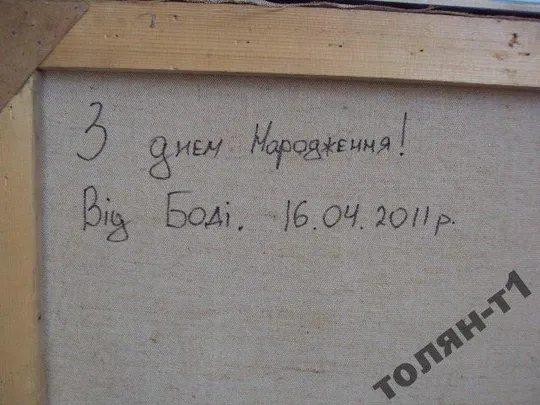 З днем Народження!
Від Боді. 16.04.2011р.
толян-т1